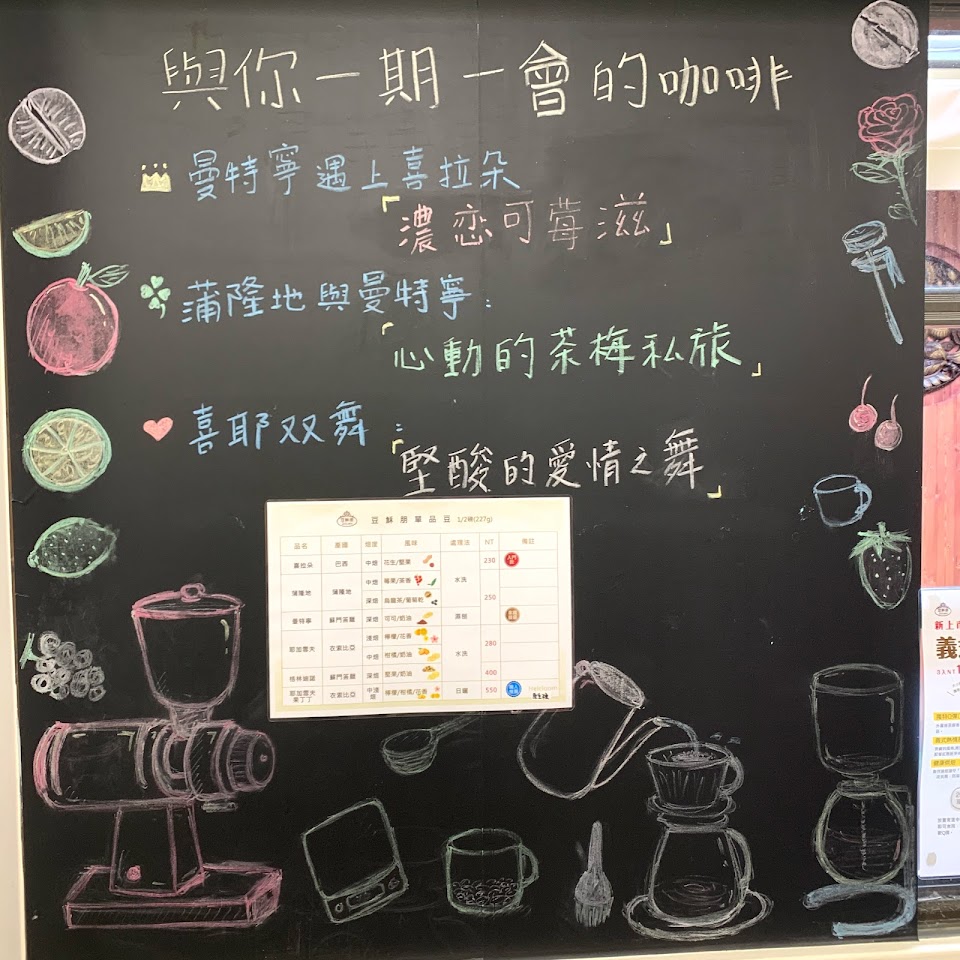 與你一期一會的咖啡
曼特寧遇上喜拉朵
「濃戀可莓滋」
蒲隆地與曼特寧:
「心動的茶梅私旅」
喜耶双舞:
「堅酸的愛情之舞」
豆穌朋單品豆 1/2磅(227g)
品名 產國 焙度 風味 處理法 NT 備註
喜拉朵 巴西 中焙 花生/堅果 水洗 230 入門
蒲隆地 蒲隆地 中焙 莓果/茶香
深焙 烏龍茶/葡萄乾 250
曼特寧 蘇門答臘 深焙 可可/奶油 濕刨
耶加雪夫 衣索比亞 淺焙 檸檬/花香 水洗 280
中焙 柑橘/奶油
格林姍瑙 蘇門答臘 深焙 堅果/奶油 400
耶加雪夫果丁丁 衣索比亞 中淺焙 檸檬/柑橘/花香 日曬 550
新上市
義